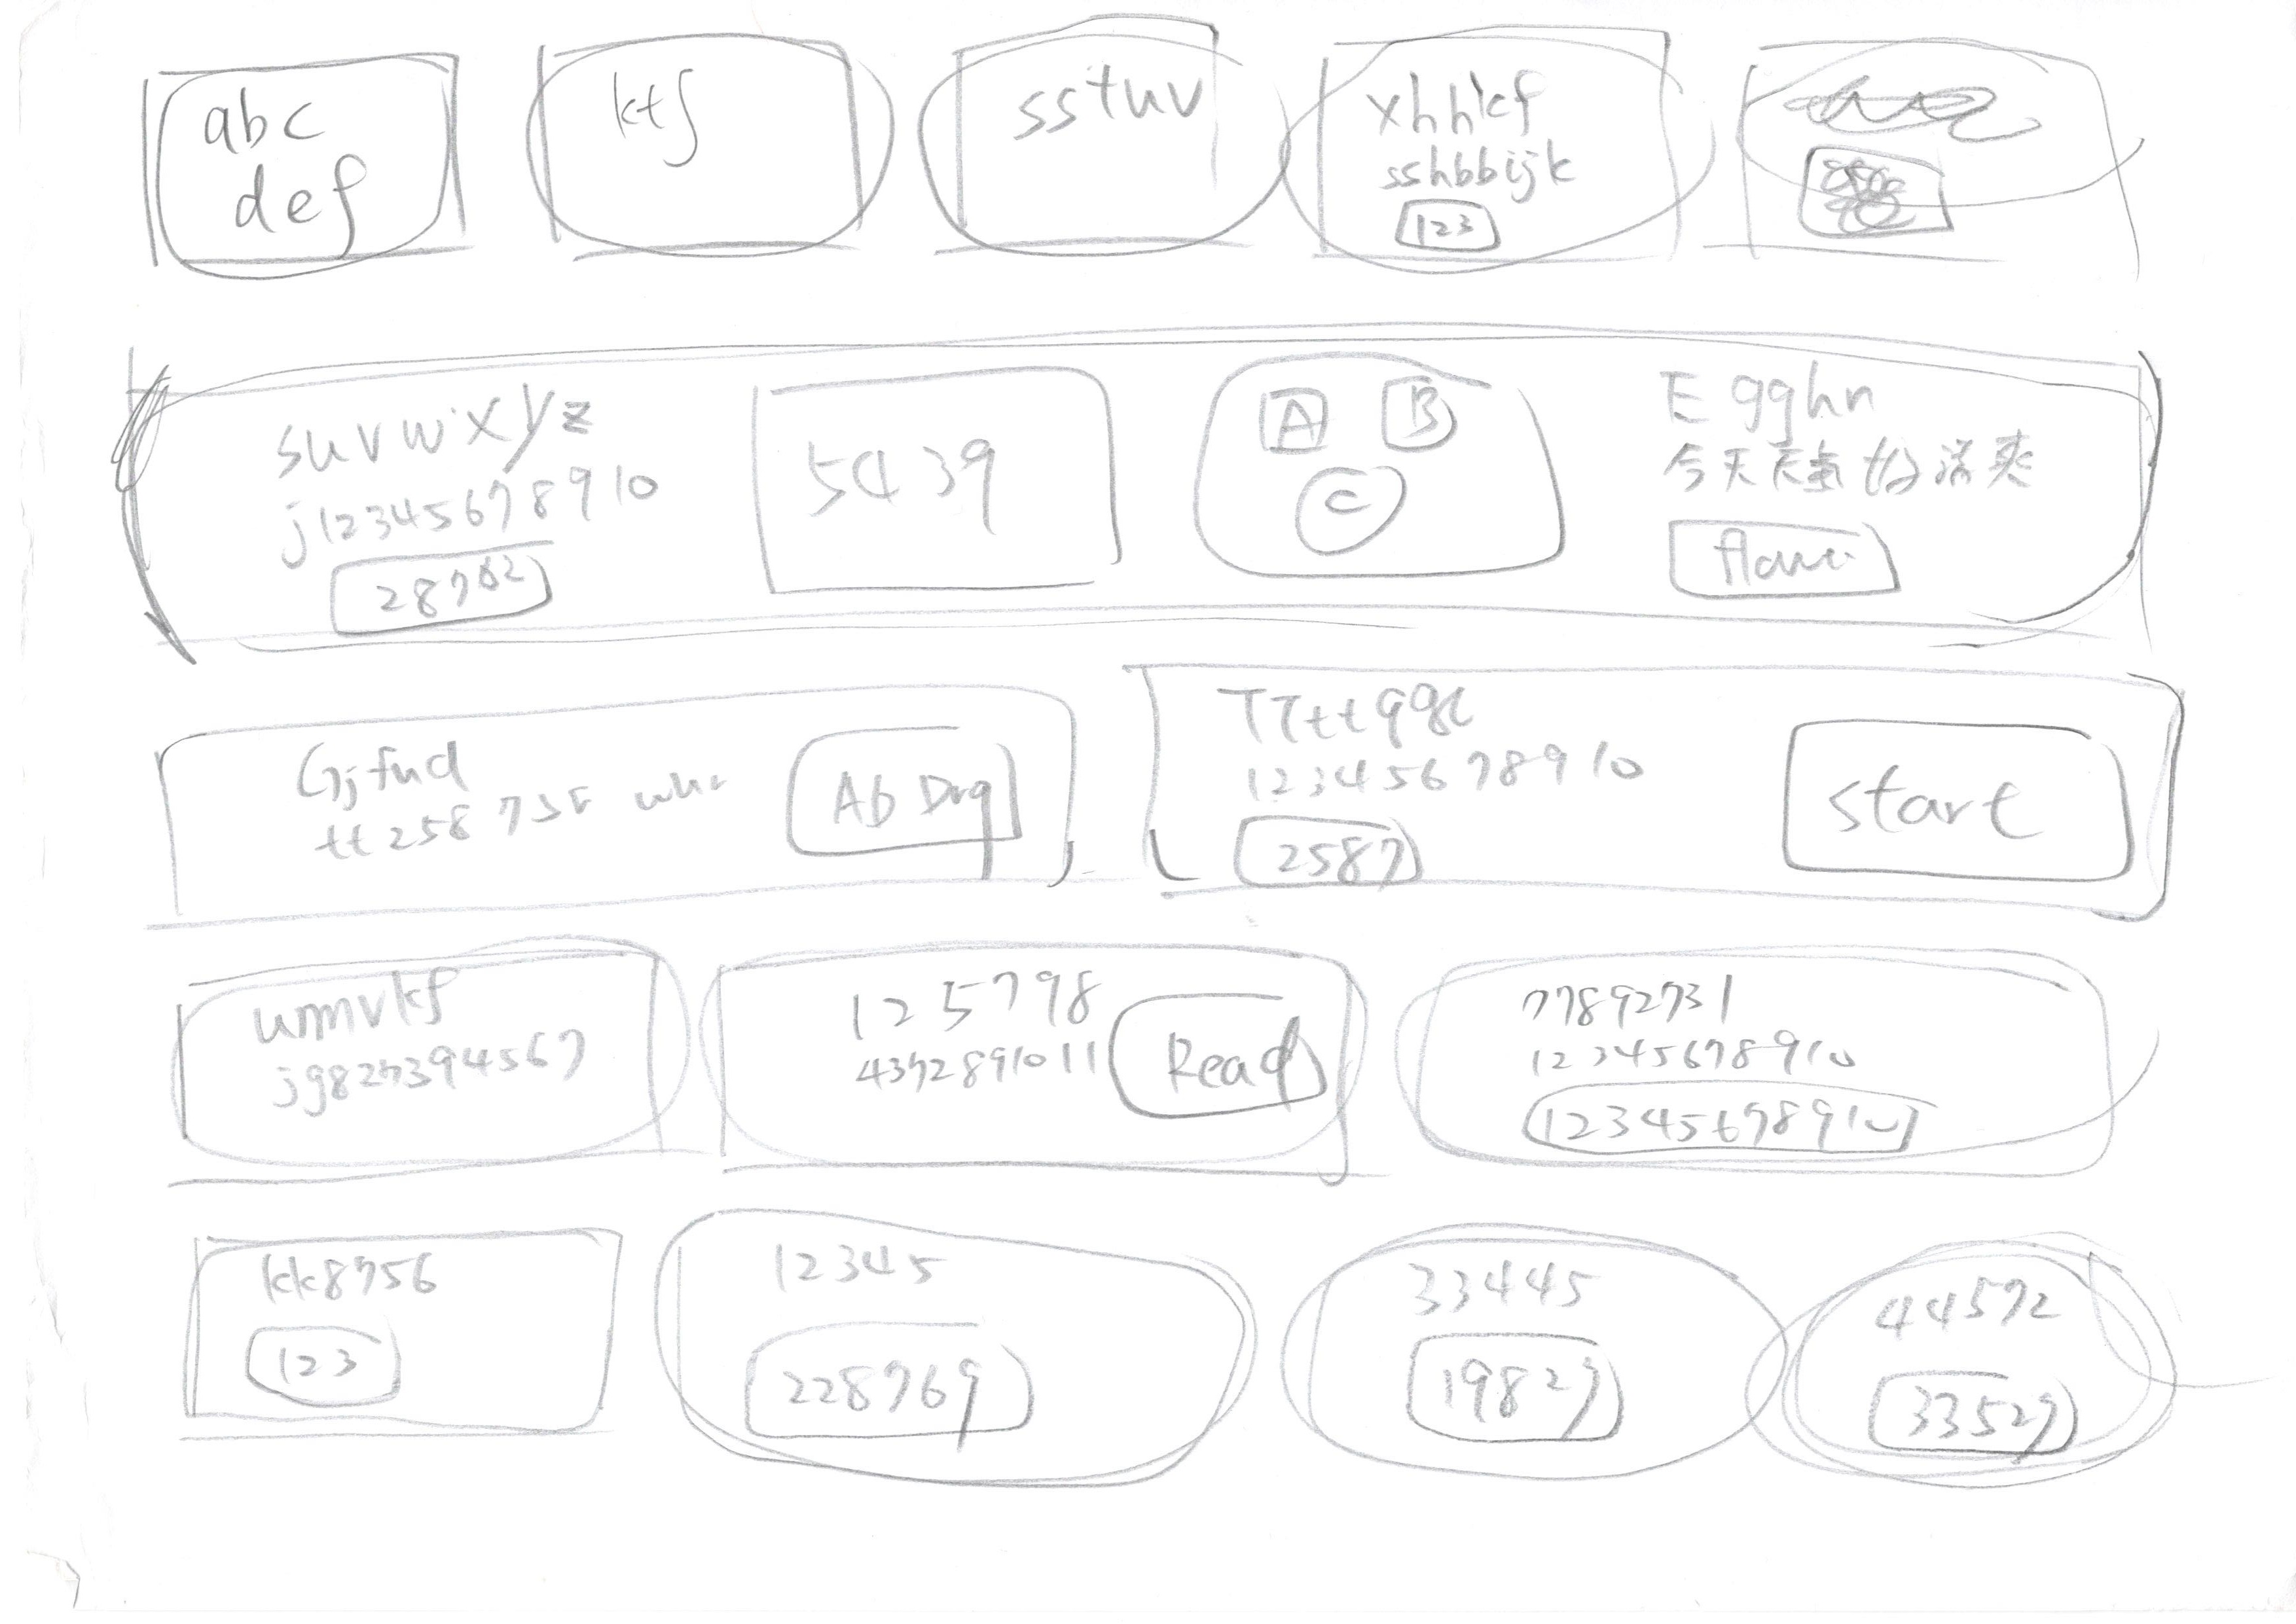 abc
def
ktf
sstuv
xhhkf
sshbbijk
123
suvwxyz
j12345678910
28762
5439
A
B
C
E gghn
今天天氣好涼爽
Gjfud
tt258 735
Ab Drg
TTttggt
12345678910
2587
start
ummvkf
jg827394567
125798
4372891011
Read
77892731
12345678910
12345678910
kk8756
123
12345
228769
33445
19827
44572
33527